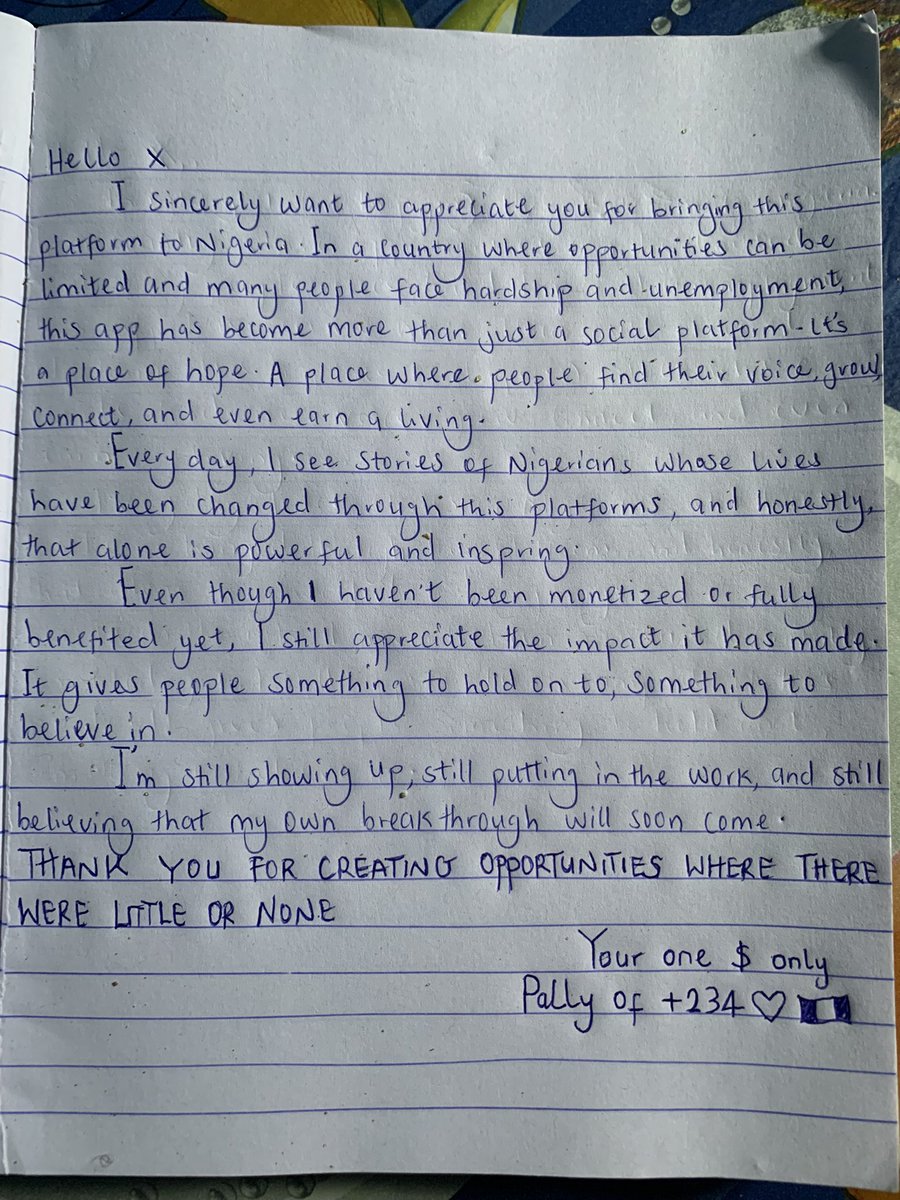 Hello X
I sincerely want to appreciate you for bringing this
platform to Nigeria. In a country where opportunities can be
limited and many people face hardship and unemployment,
this app has become more than just a social platform - It's
a place of hope. A place where people find their voice, grow,
connect, and even earn a living.
Every day, I see stories of Nigerians whose lives
have been changed through this platforms, and honestly,
that alone is powerful and inspring.
Even though I haven't been monetized or fully
benefited yet, I still appreciate the impact it has made.
It gives people something to hold on to, something to
believe in.
I'm still showing up, still putting in the work, and still
believing that my own breakthrough will soon come.
THANK YOU FOR CREATING OPPORTUNITIES WHERE THERE
WERE LITTLE OR NONE
Your one $ only
Pally of +234 ♡